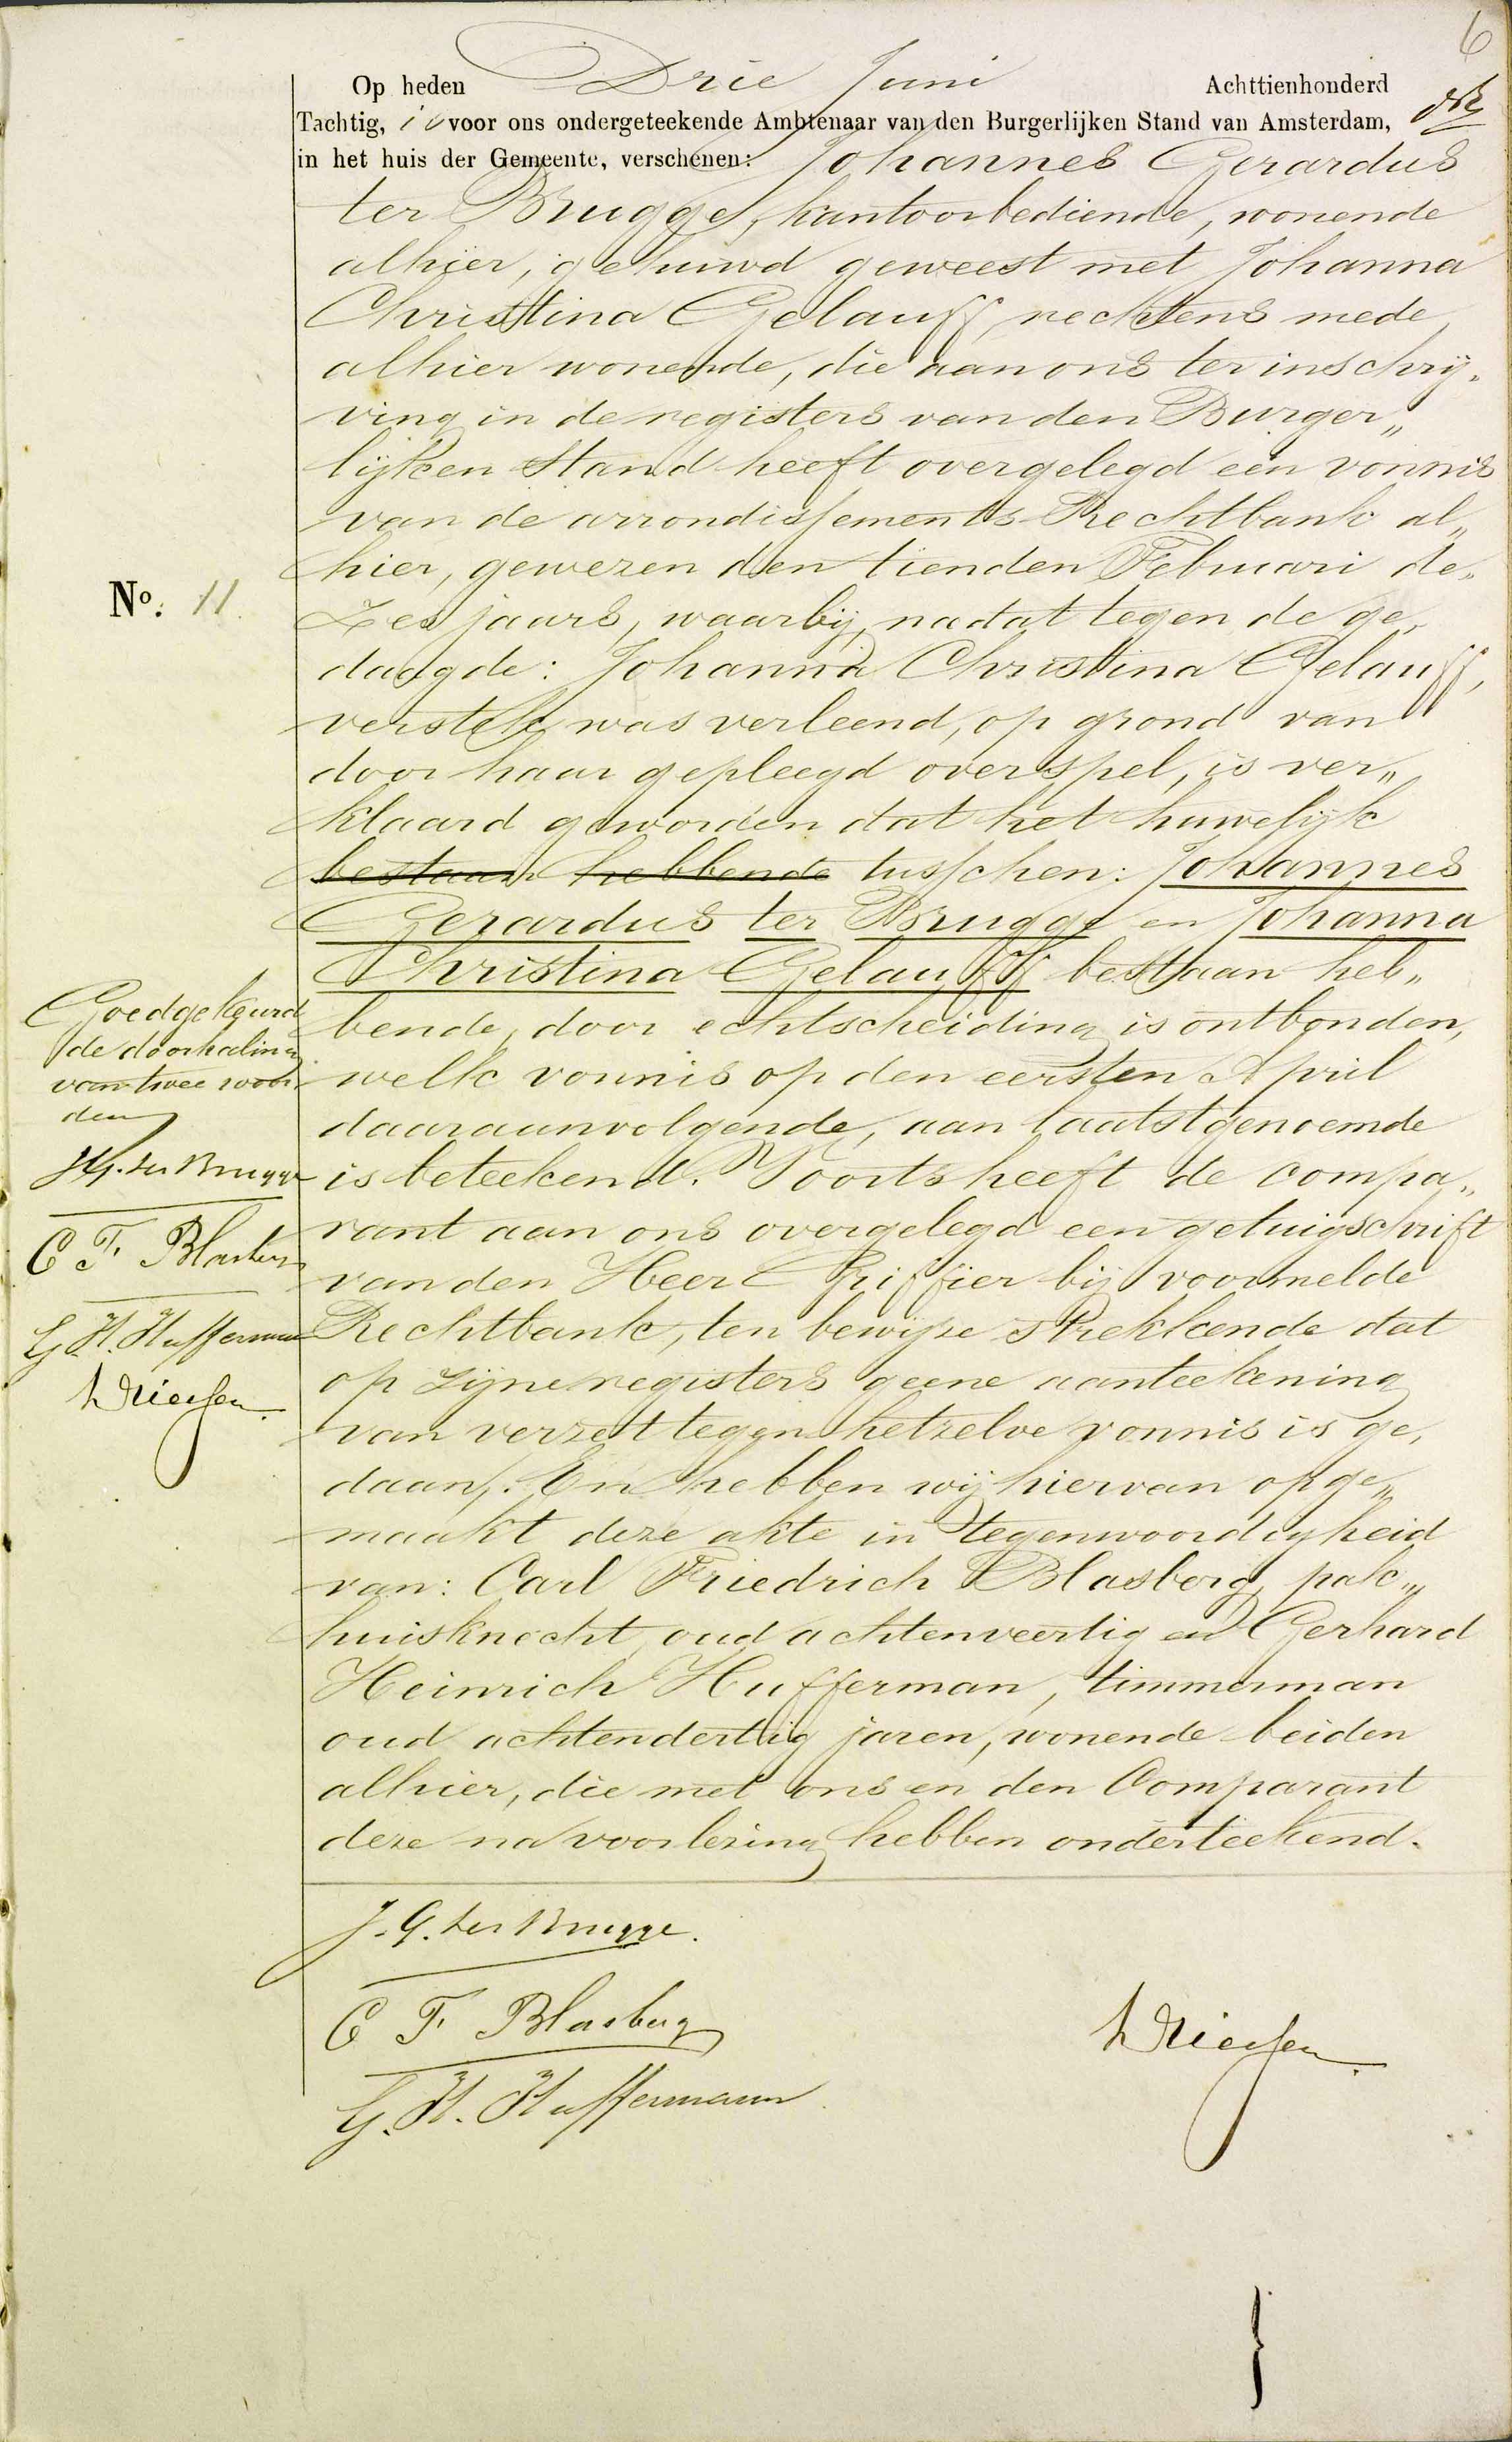 6
Op heden Drie Juni Achttienhonderd
Tachtig, is voor ons ondergeteekende Ambtenaar van den Burgerlijken Stand van Amsterdam,
in het huis der Gemeente, verschenen: Johannes Gerardus
ter Brugge, kantoorbediende, wonende
alhier, gehuwd geweest met Johanna
Christina Gelauff, rechtens mede
alhier wonende, die aan ons ter inschrij„
ving in de registers van den Burger„
lijken Stand heeft overgelegd een vonnis
van de arrondissements-Rechtbank al„
hier, gewezen den tienden Februari de„
No. 11.
zes jaars, waarbij, nadat tegen de ge„
daagde: Johanna Christina Gelauff,
verstek was verleend, op grond van
door haar gepleegd overspel, is ver„
klaard geworden dat het huwelijk
bestaan hebbende tusschen: Johannes
Gerardus ter Brugge en Johanna
Christina Gelauff bestaan heb„
bende, door echtscheiding is ontbonden,
welk vonnis op den eersten April
daaraanvolgende, aan laatstgenoemde
is beteekend. Voorts heeft de compa„
rant aan ons overgelegd een getuigschrift
van den Heer Griffier bij voormelde
Rechtbank, ten bewijze strekkende dat
op zijne registers geene aanteekening
van verzet tegen hetzelve vonnis is ge„
daan. En hebben wij hiervan opge„
maakt deze akte in tegenwoordigheid
van: Carl Friedrich Blasberg, pak„
huisknecht, oud achtenveertig en Gerhard
Heinrich Hufferman, timmerman
oud achtendertig jaren, wonende beiden
alhier, die met ons en den Comparant
deze na voorlezing hebben onderteekend.
Goedgekeurd
de doorhaling
van twee woor
den
J.G. ter Brugge
C F Blasberg
G. H. Huffermann
Driessen
J. G. ter Brugge.
C F Blasberg
G. H. Huffermann
Driessen